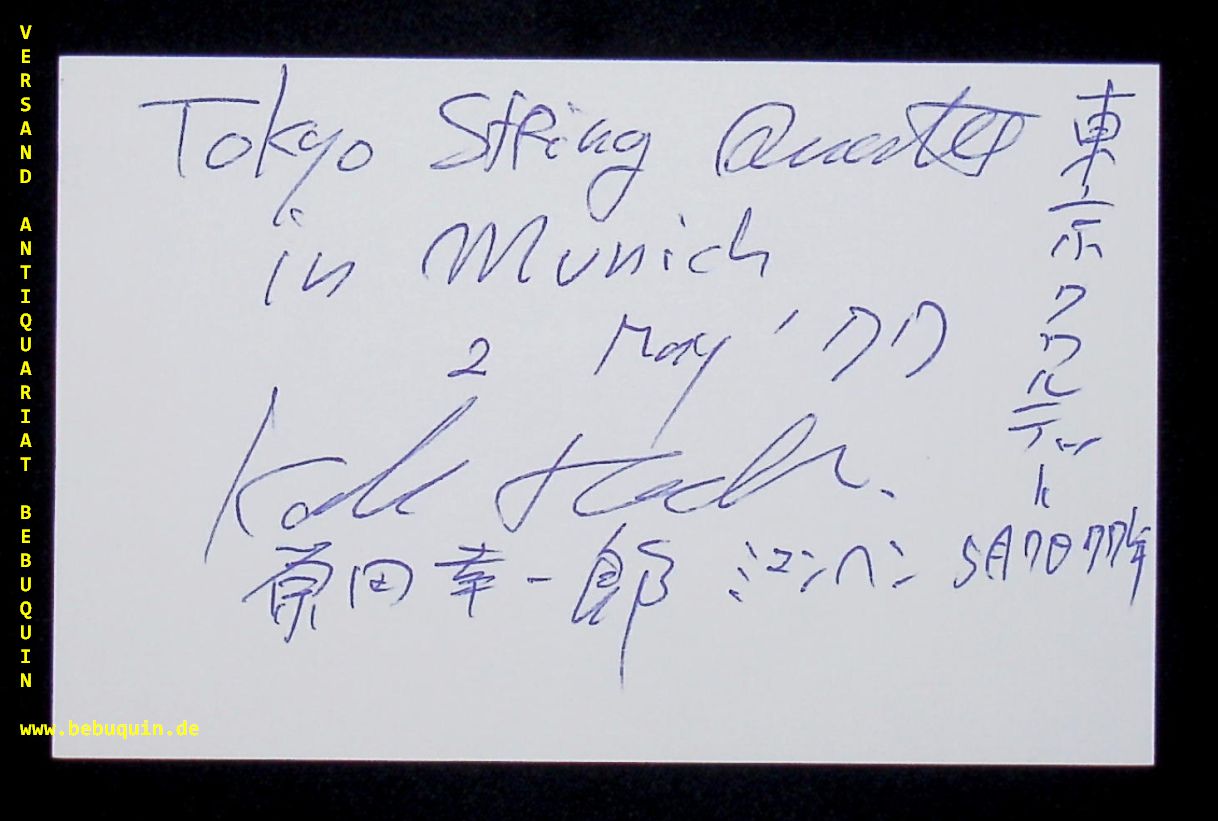 VERSAND ANTIQUARIAT BEBUQUIN
Tokyo String Quartet
in Munich
2 May '77
Koichi Harada.
原田幸一郎 ミュンヘン 5月7日77年
東京クワルテット
www.bebuquin.de